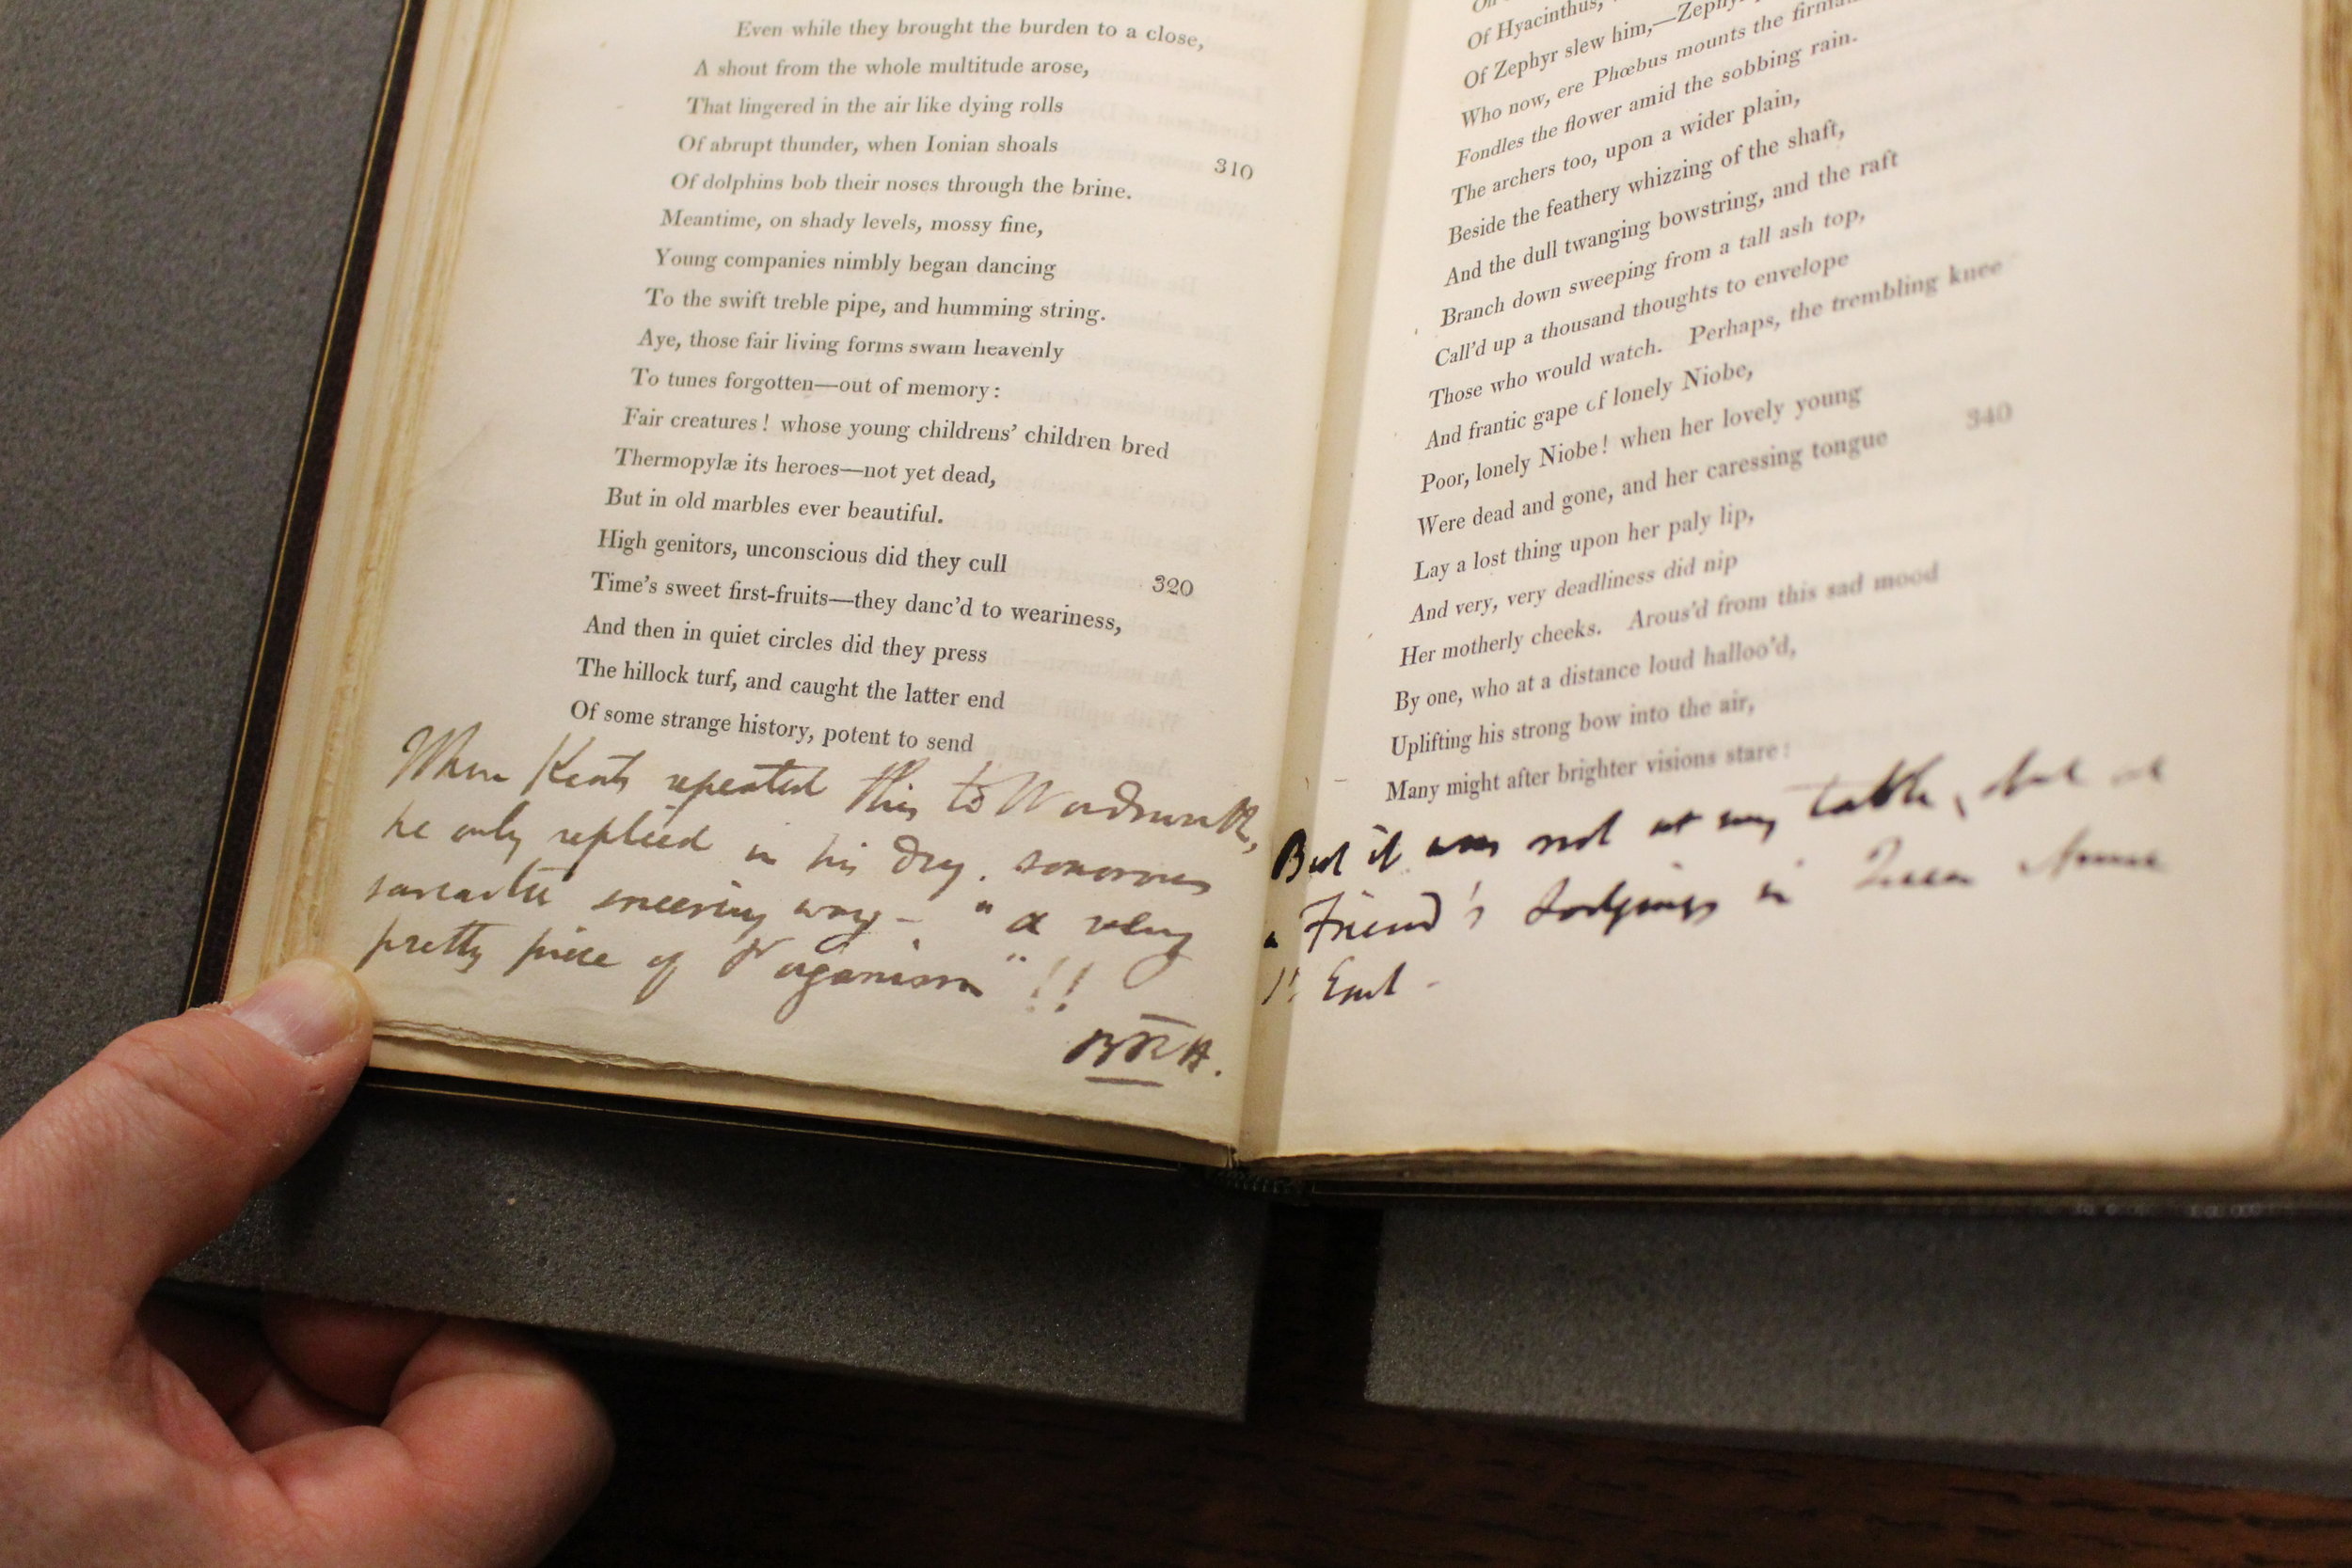 Even while they brought the burden to a close,
A shout from the whole multitude arose,
That lingered in the air like dying rolls
Of abrupt thunder, when Ionian shoals 310
Of dolphins bob their noses through the brine.
Meantime, on shady levels, mossy fine,
Young companies nimbly began dancing
To the swift treble pipe, and humming string.
Aye, those fair living forms swam heavenly
To tunes forgotten—out of memory:
Fair creatures! whose young childrens' children bred
Thermopylæ its heroes—not yet dead,
But in old marbles ever beautiful.
High genitors, unconscious did they cull 320
Time's sweet first-fruits—they danc'd to weariness,
And then in quiet circles did they press
The hillock turf, and caught the latter end
Of some strange history, potent to send
When Keats repeated this to Wordsworth,
he only replied in his dry, sonorous
sarcastic sneering way— "a very
pretty piece of Paganism" !!
BRH.
Of Hyacinthus,
Of Zephyr slew him,—
Who now, ere Phœbus mounts the
Fondles the flower amid the sobbing rain.
The archers too, upon a wider plain,
Beside the feathery whizzing of the shaft,
And the dull twanging bowstring, and the raft
Branch down sweeping from a tall ash top,
Call'd up a thousand thoughts to envelope
Those who would watch. Perhaps, the trembling knee
And frantic gape of lonely Niobe,
Poor, lonely Niobe! when her lovely young
Were dead and gone, and her caressing tongue 340
Lay a lost thing upon her paly lip,
And very, very deadliness did nip
Her motherly cheeks. Arous'd from this sad mood
By one, who at a distance loud halloo'd,
Uplifting his strong bow into the air,
Many might after brighter visions stare:
But it was not at my table, but at
a Friend's Lodgings in Queen Anne
St East